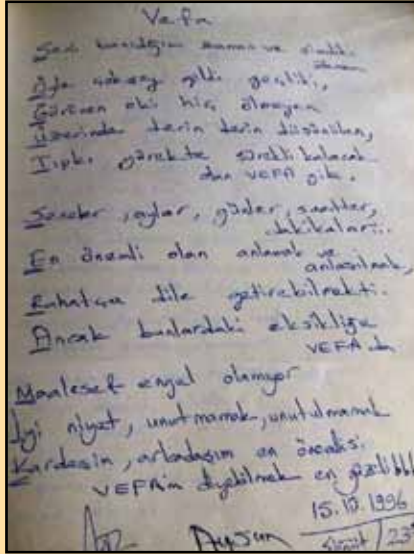 Vefa
Seni tanıdığım zaman ve şimdiki
Öyle çabuk geldi geçtiki,
Görünen oki hiç olmayan
Üzerinde derin derin düşünülen,
Tıpkı yürekte sürekli kalacak
olan VEFA gibi.
Seneler, aylar, günler, saatler,
dakikalar..
En önemli olan anlamak ve
anlaşılmak,
Rahatça dile getirebilmekti.
Ancak bunlardaki eksikliğe
VEFA da
Maalesef engel olamıyor
İyi niyet, unutmamak, unutulmamak
Kardeşin, arkadaşın en öncelisi
VEFA'm diyebilmek en güzeli
15.10.1996
Aysun